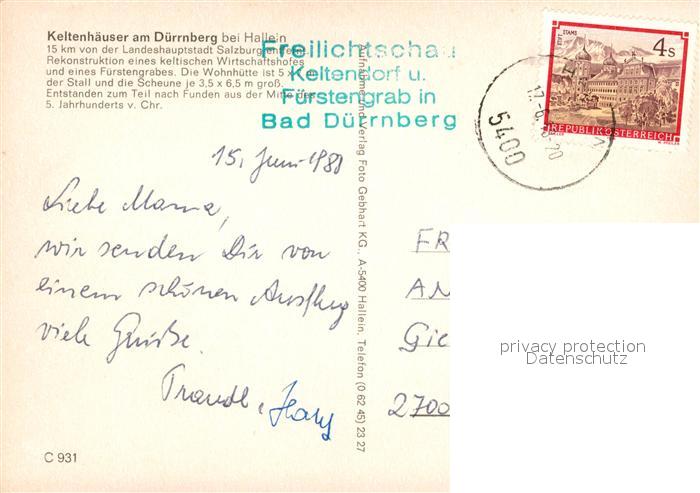 Keltenhäuser am Dürrnberg bei Hallein
15 km von der Landeshauptstadt Salzburg entfernt.
Rekonstruktion eines keltischen Wirtschaftshofes
und eines Fürstengrabes. Die Wohnhütte ist 5 x
der Stall und die Scheune je 3,5 x 6,5 m groß.
Entstanden zum Teil nach Funden aus der Mitte des
5. Jahrhunderts v. Chr.
Freilichtschau
Keltendorf u.
Fürstengrab in
Bad Dürrnberg
STIFT STAMS
4 S
REPUBLIK ÖSTERREICH
5400
15. Juni 1988
Liebe Mama,
wir senden Dir von
einem schönen Ausflug
viele Grüße.
Traudl,
Aufnahme und Verlag Foto Gebhart KG., A-5400 Hallein, Telefon (0 62 45) 23 27
FR
AN
Gie
2700
privacy protection
Datenschutz
C 931